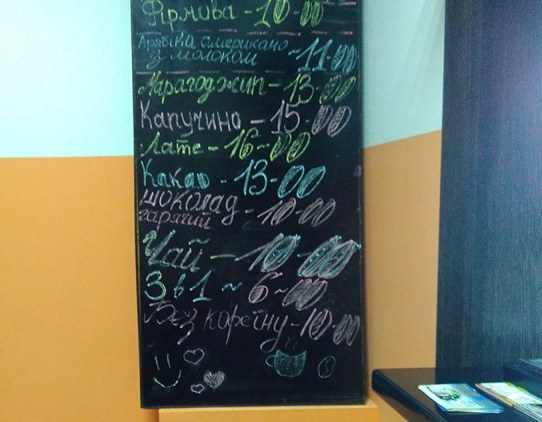 Фірмова - 10-00
Арабіка американо
з молоком ~ 11-00
Марагоджип - 13-00
Капучино - 15-00
Лате - 16-00
Какао - 13-00
шоколад
гарячий - 10-00
Чай - 10-00
3 в 1 ~ 6-00
Без кофеїну - 10-00